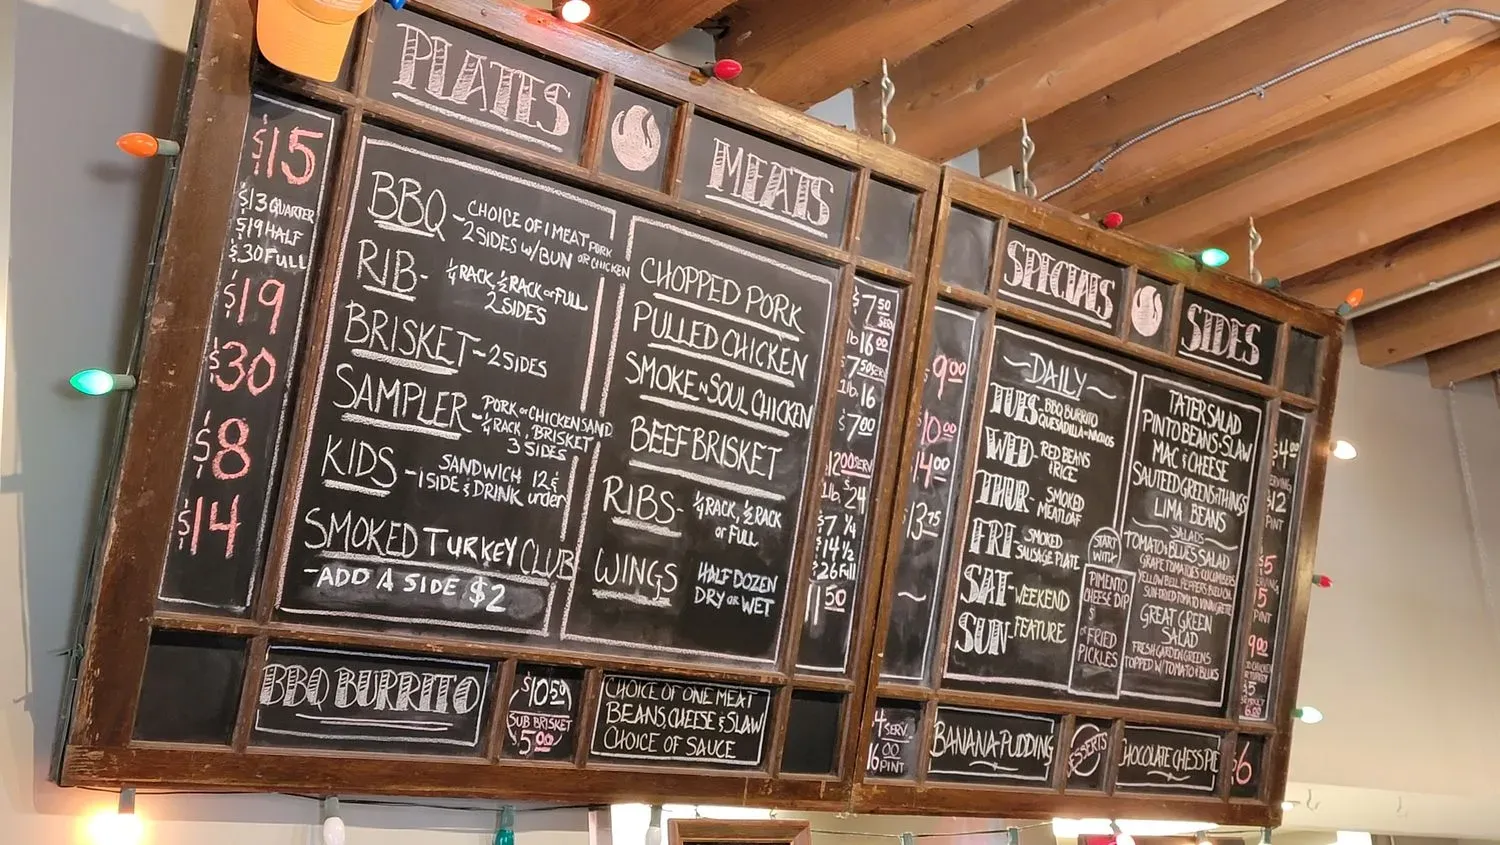 PLATES
MEATS
$15
BBQ - CHOICE OF 1 MEAT PORK OR CHICKEN
2 SIDES w/BUN
$13 QUARTER
$19 HALF
$30 FULL
RIB - ¼ RACK, ½ RACK or FULL
2 SIDES
$19
BRISKET - 2 SIDES
$30
SAMPLER - PORK or CHICKEN SAND
¼ RACK, BRISKET
3 SIDES
$8
KIDS - SANDWICH 12 &
1 SIDE & DRINK under
$14
SMOKED TURKEY CLUB
- ADD A SIDE $2
CHOPPED PORK
$7 50
lb 16 00
PULLED CHICKEN
$7 50
1 lb. 16
SMOKE N SOUL CHICKEN
$7 00
BEEF BRISKET
12 00 SERV
1 lb. $24
RIBS - ¼ RACK, ½ RACK
or FULL
$7 ¼
$14 ½
$26 Full
WINGS HALF DOZEN
DRY OR WET
11 50
BBQ BURRITO
$10 50
SUB BRISKET
$5 00
CHOICE OF ONE MEAT
BEANS CHEESE & SLAW
CHOICE OF SAUCE
SPECIALS
SIDES
DAILY
9 00
TUES - BBQ BURRITO
QUESADILLA - NACHOS
10 00
WED - RED BEANS
& RICE
14 00
THUR - SMOKED
MEATLOAF
$13 75
FRI - SMOKED
SAUSAGE PLATE
~
SAT - WEEKEND
SUN - FEATURE
START
WITH
PIMENTO
CHEESE DIP
$
or FRIED
PICKLES
TATER SALAD
PINTO BEANS - SLAW
MAC & CHEESE
SAUTEED GREENS & THINGS
LIMA BEANS
$4 00
$12
PINT
SALADS
TOMATO & BLUES SALAD
GRAPE TOMATOES CUCUMBERS
GREAT GREEN
SALAD
FRESH GARDEN GREENS
TOPPED W/ TOMATO & BLUES
9 00
$5
6 00
4 SERV.
16 00
PINT
BANANA PUDDING
DESSERTS
CHOCOLATE CHESS PIE
$6